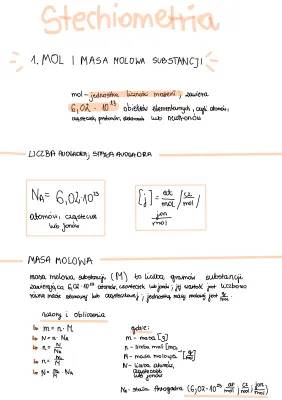 Stechiometria
1. MOL I MASA MOLOWA SUBSTANCJI
mol - jednostka liczności materii, zawiera
6,02 · 10²³ obiektów elementarnych, czyli atomów,
cząsteczek, protonów, elektronów lub neutronów
LICZBA AVOGADRA, STAŁA AVOGADRA
NA = 6,02·10²³
atomów, cząsteczek
lub jonów
[j] = at/mol / cz/mol /
jon/mol
MASA MOLOWA
masa molowa substancji (M) to liczba gramów substancji
zawierająca 6,02·10²³ atomów, cząsteczek lub jonów; jej wartość jest liczbowo
równa masie atomowej lub cząsteczkowej; jednostką masy molowej jest g/mol
wzory i obliczenia
↳ m = n · M
↳ N = n · NA
↳ n = N/NA
↳ n = m/M
↳ N = m/M · NA
gdzie:
m - masa [g]
n - liczba moli [mol]
M - masa molowa [g/mol]
N - liczba atomów,
cząsteczek
lub jonów
NA - stała Avogadra (6,02·10²³ at/mol / cz/mol / jon/mol)